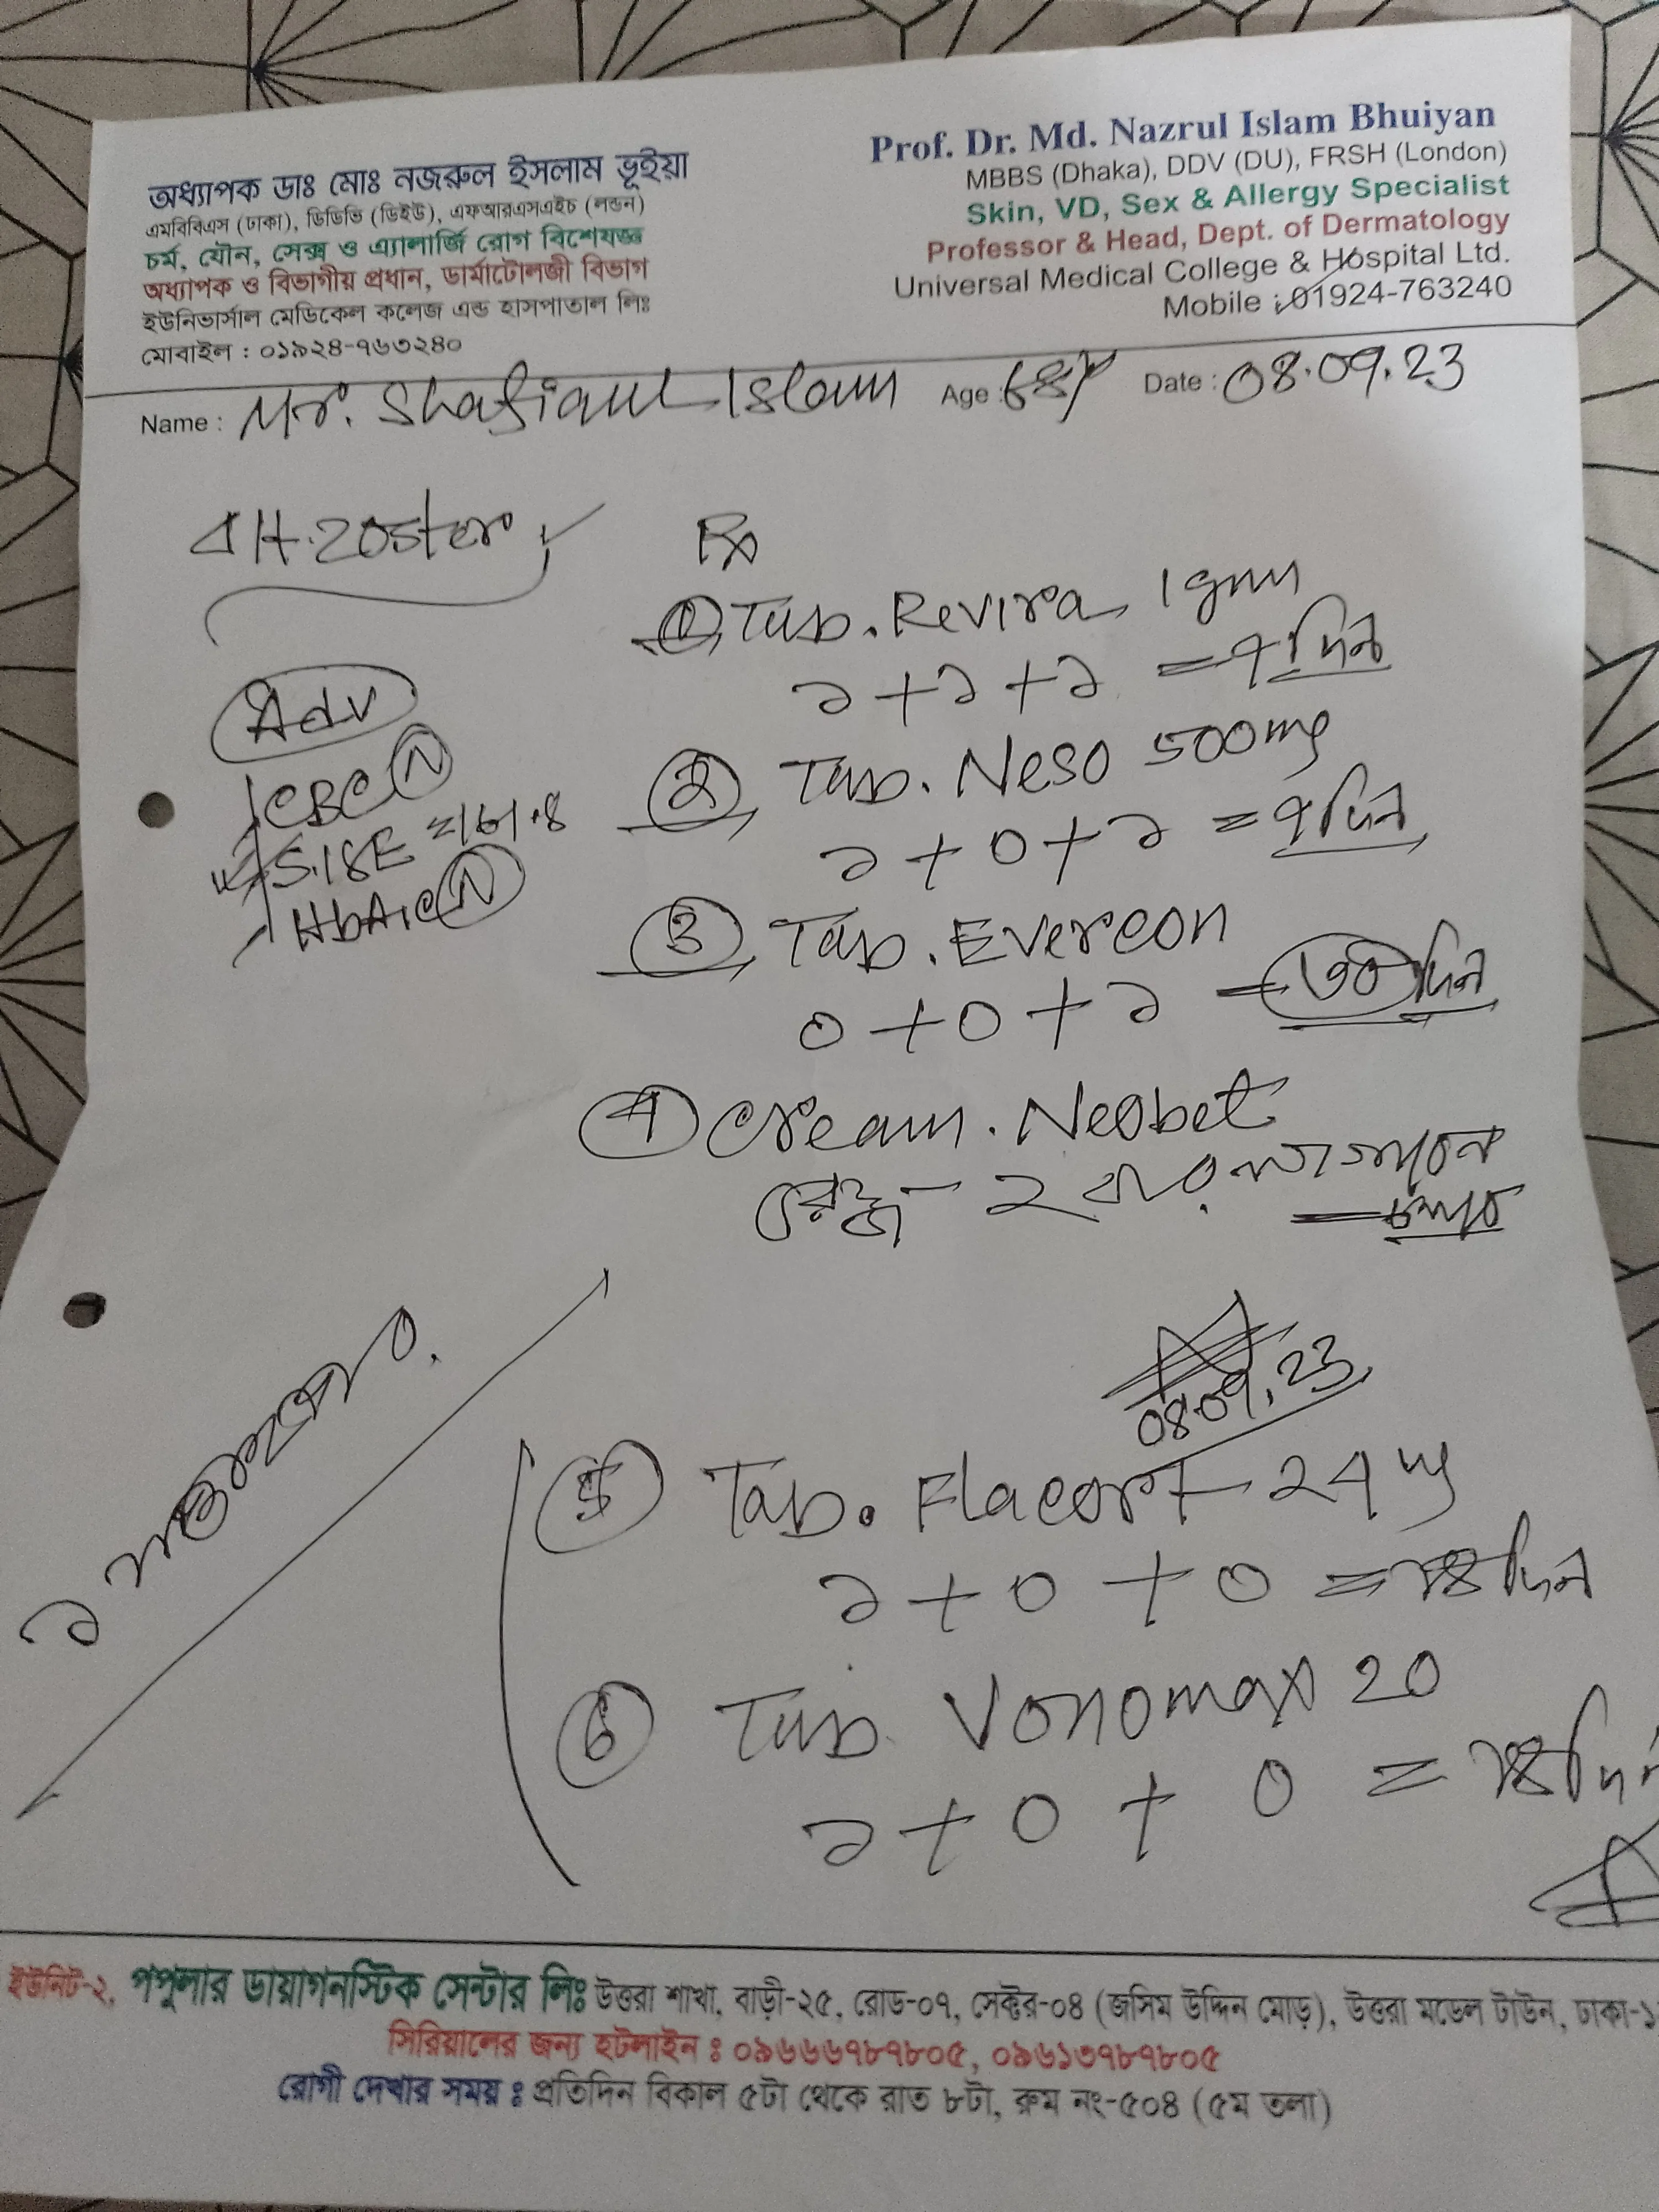 অধ্যাপক ডাঃ মোঃ নজরুল ইসলাম ভূইয়া
এমবিবিএস (ঢাকা), ডিডিভি (ডিইউ), এফআরএসএইচ (লন্ডন)
চর্ম, যৌন, সেক্স ও এ্যালার্জি রোগ বিশেষজ্ঞ
অধ্যাপক ও বিভাগীয় প্রধান, ডার্মাটোলজী বিভাগ
ইউনিভার্সাল মেডিকেল কলেজ এন্ড হাসপাতাল লিঃ
মোবাইল : ০১৯২৪-৭৬৩২৪০
Prof. Dr. Md. Nazrul Islam Bhuiyan
MBBS (Dhaka), DDV (DU), FRSH (London)
Skin, VD, Sex & Allergy Specialist
Professor & Head, Dept. of Dermatology
Universal Medical College & Hospital Ltd.
Mobile : 01924-763240
Name : Mr. Shafiaul Islam Age : 68y Date : 08.09.23
H.zoster
Adv
CBC (N)
HbA1c (N)
Rx
1 Tab. Revira 1gm
১+১+১ = ৭ দিন
2 Tab. Neso 500mg
১+০+১ = ৭ দিন
3 Tab. Evercon
০+০+১ = ৩০ দিন
4 Cream. Neobet
রোজ - ২ বার লাগাবেন
= চলবে
08.09.23
5 Tab. Flacort 24mg
১+০+০ = ১৪ দিন
6 Tab. Vonomax 20
১+০+০ = ১৪ দিন
১
ইউনিট-২, পপুলার ডায়াগনস্টিক সেন্টার লিঃ উত্তরা শাখা, বাড়ী-২৫, রোড-০৭, সেক্টর-০৪ (জসিম উদ্দিন মোড়), উত্তরা মডেল টাউন, ঢাকা-১
সিরিয়ালের জন্য হটলাইন : ০৯৬৬৬৭৮৭৮০৫, ০৯৬১৩৭৮৭৮০৫
রোগী দেখার সময় : প্রতিদিন বিকাল ৫টা থেকে রাত ৮টা, রুম নং-৫০৪ (৫ম তলা)